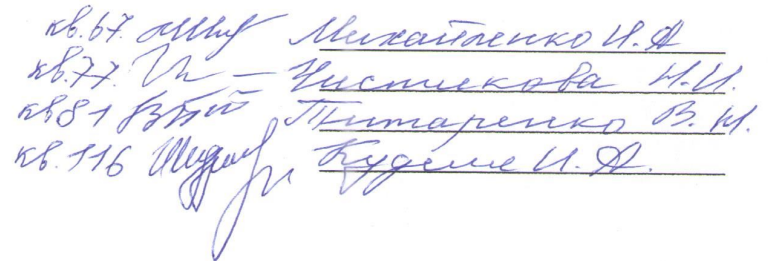 кв. 67. Михайленко И. А
кв. 77. Чистякова Н. И.
кв 81 Титаренко В. И.
кв. 116 И. А.